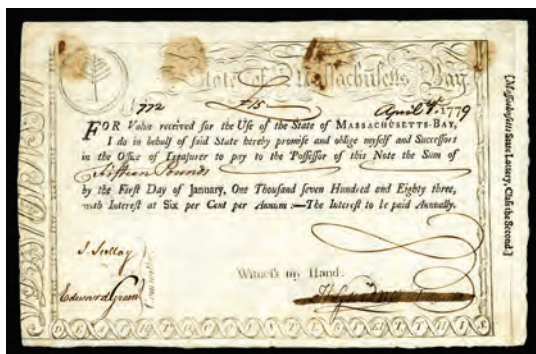 State of Massachusetts Bay
772 £15 April 1779
FOR Value received for the Use of the State of MASSACHUSETTS-BAY,
I do in behalf of said State hereby promise and oblige myself and Successors
in the Office of Treasurer to pay to the Possessor of this Note the Sum of
Fifteen Pounds
by the First Day of January, One Thousand seven Hundred and Eighty three,
with Interest at Six per Cent per Annum :—The Interest to be paid Annually.
Witness my Hand.
Edward Green
[Massachusetts State Lottery, Class the Second.]